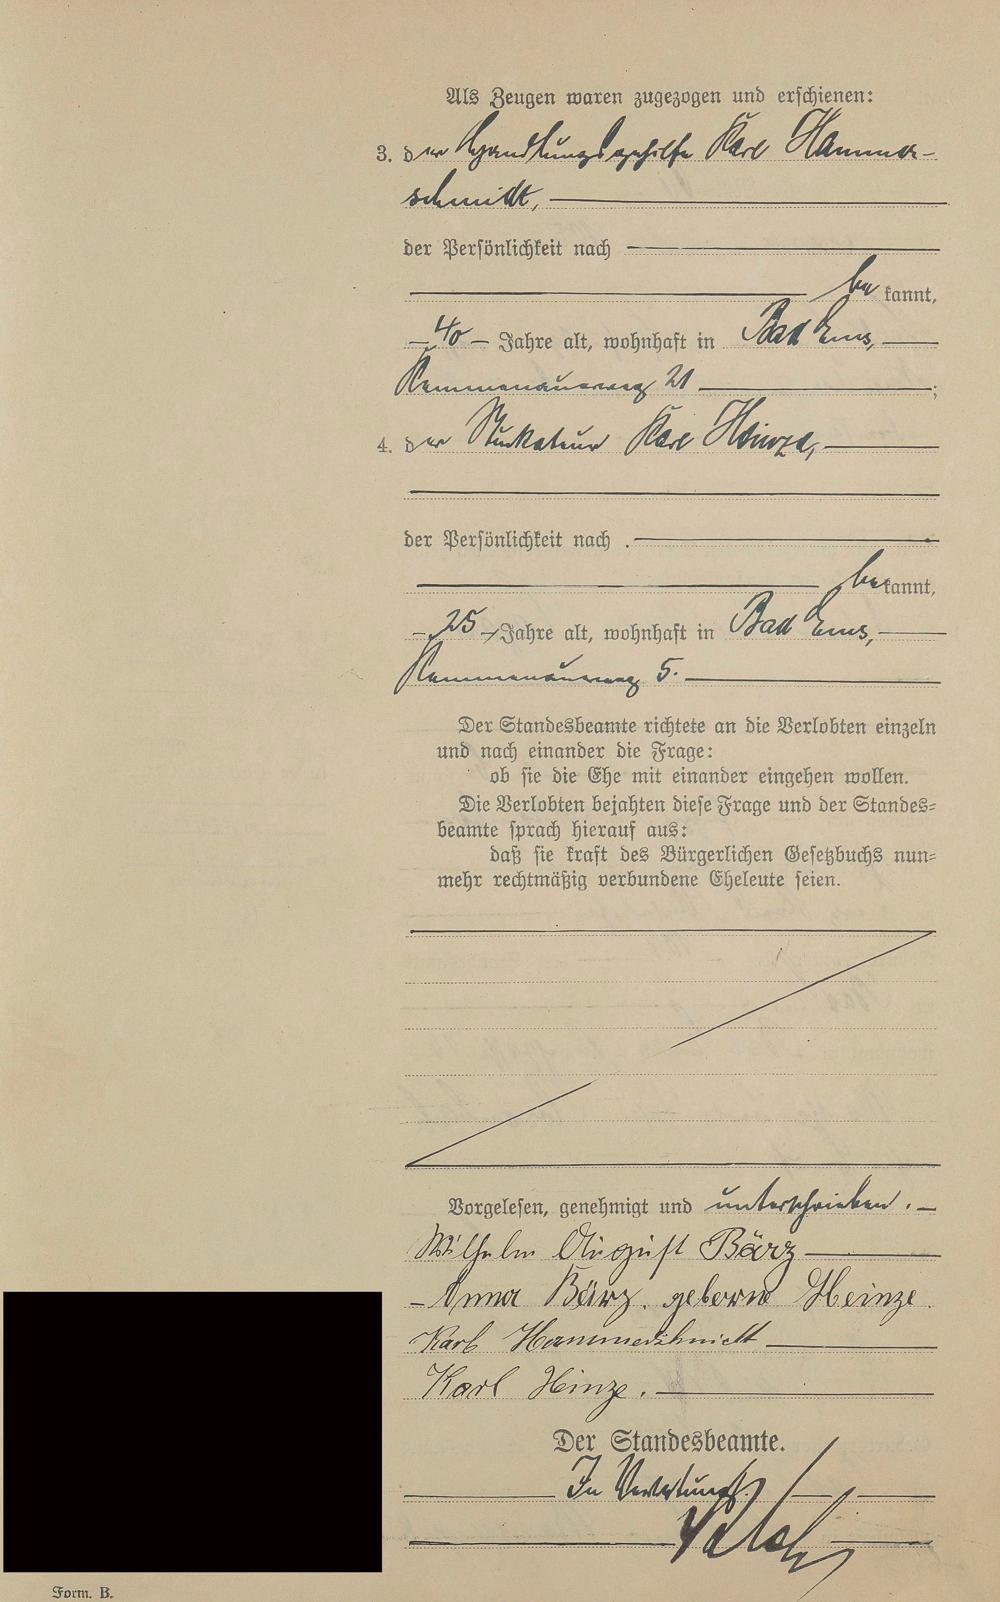 Als Zeugen waren zugezogen und erschienen:
3. der Handlungsgehilfe Karl Hammer-
schmidt,
der Persönlichkeit nach
be kannt,
40 Jahre alt, wohnhaft in Bad Ems,
Kemmenauerweg 21 ;
4. der Stuckateur Karl Heinze,
der Persönlichkeit nach
be kannt,
25 Jahre alt, wohnhaft in Bad Ems,
Kemmenauerweg 5.
Der Standesbeamte richtete an die Verlobten einzeln
und nach einander die Frage:
ob sie die Ehe mit einander eingehen wollen.
Die Verlobten bejahten diese Frage und der Standes-
beamte sprach hierauf aus:
daß sie kraft des Bürgerlichen Gesetzbuchs nun-
mehr rechtmäßig verbundene Eheleute seien.
Vorgelesen, genehmigt und unterschrieben.
Wilhelm August Bärz
Anna Bärz. geborne Heinze.
Karl Hammerschmidt
Karl Heinze.
Der Standesbeamte.
In Vertretung
Form. B.